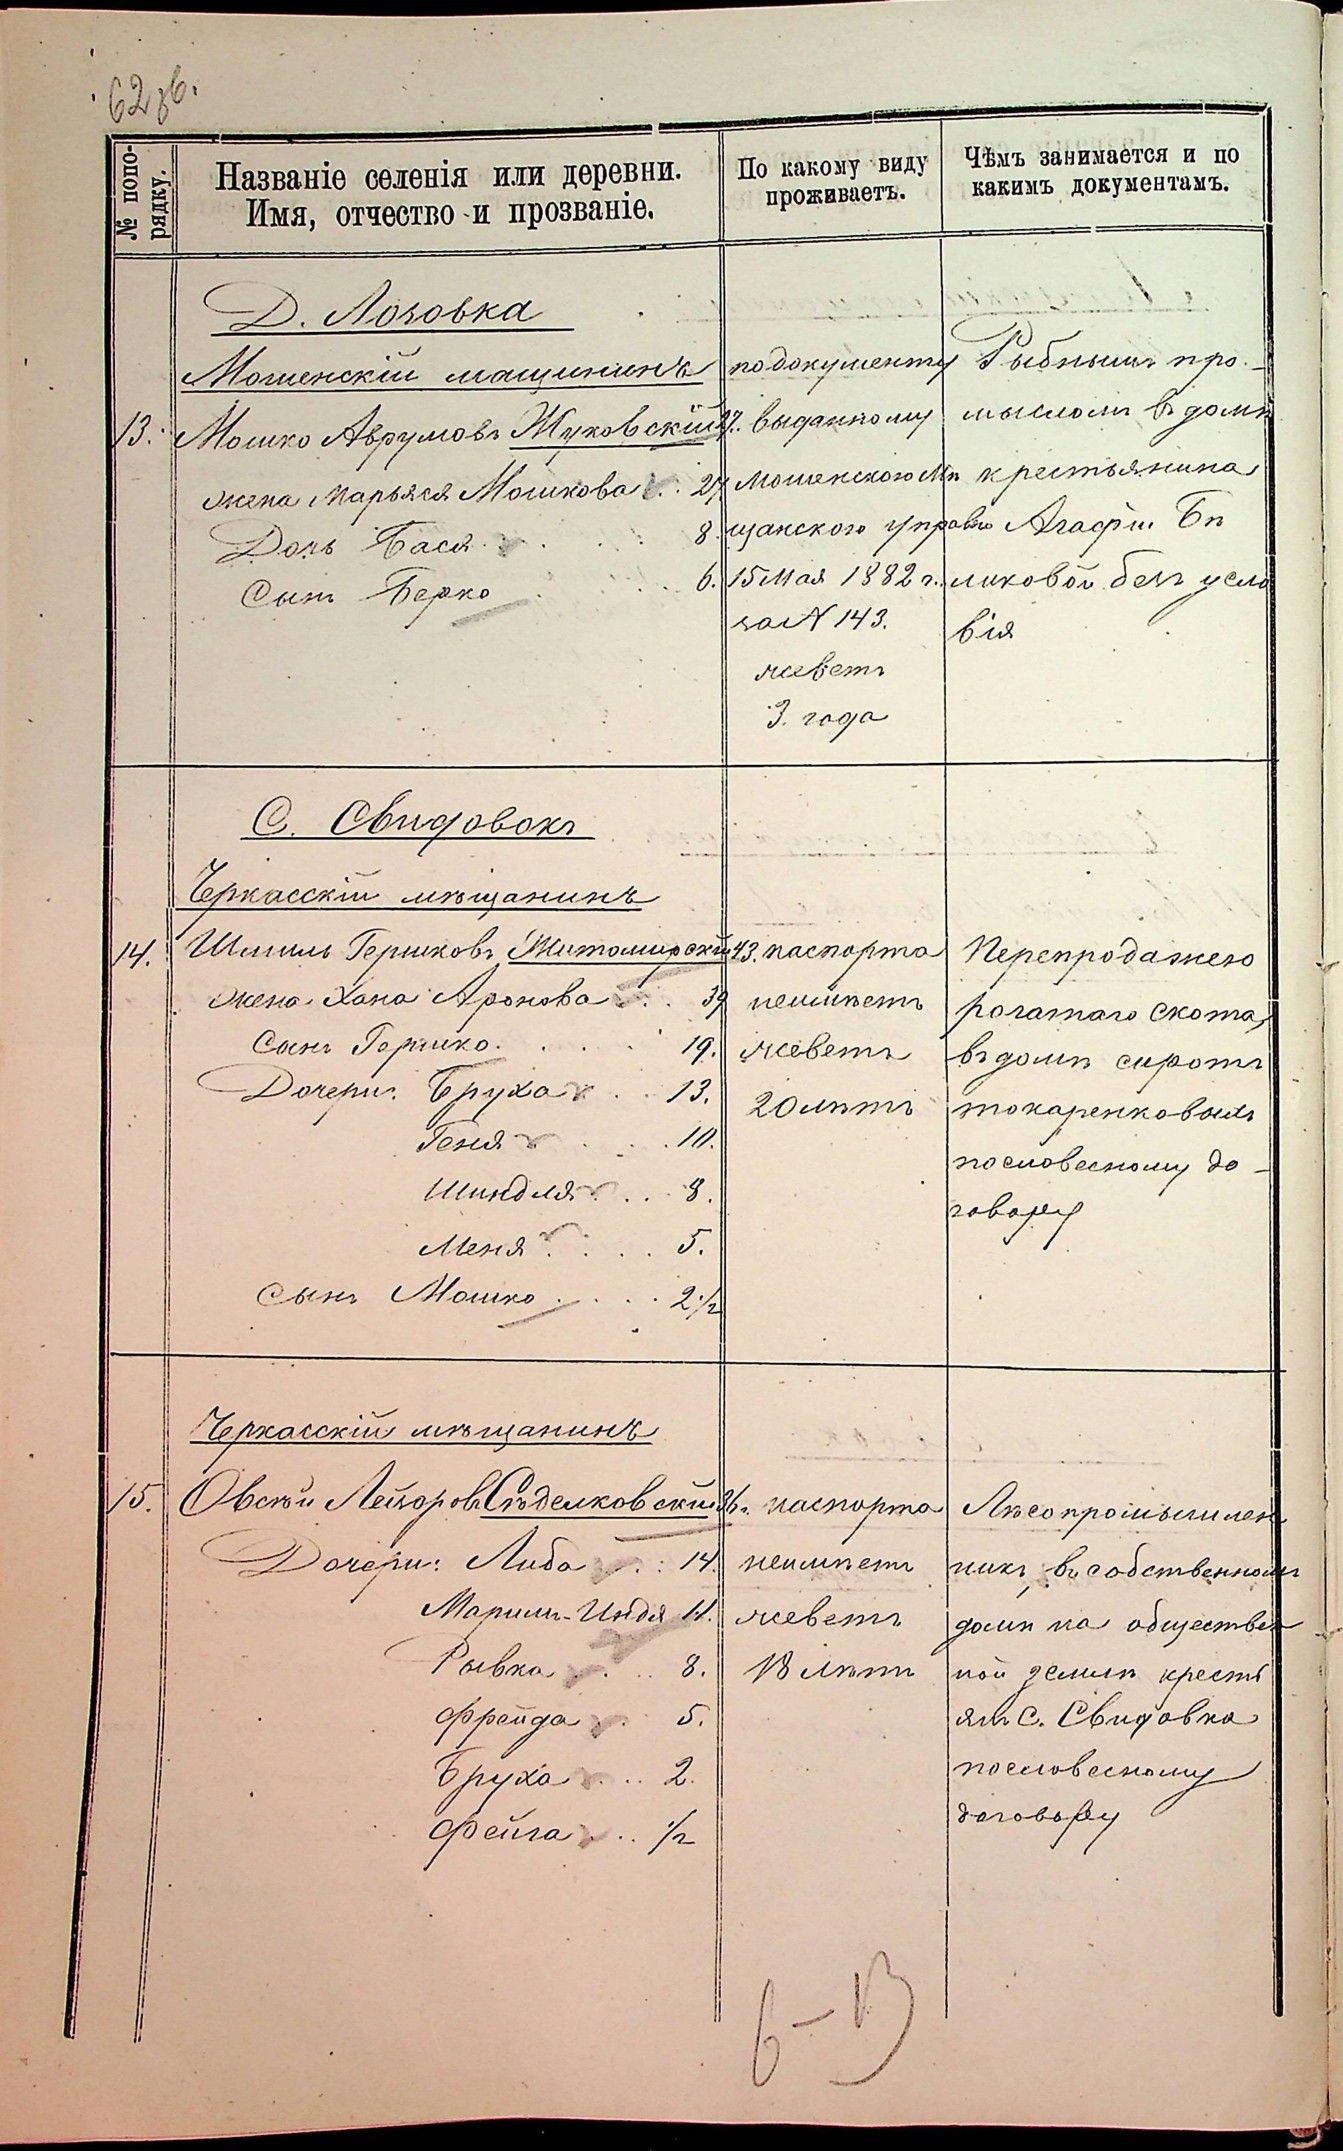 62 зв.
№ попо-
рядку.
Названіе селенія или деревни.
Имя, отчество и прозваніе.
По какому виду
проживаетъ.
Чѣмъ занимается и по
какимъ документамъ.
Д. Лозовка
Мошенскій мѣщанинъ
13. Мошко Аврумовъ Жуковскій 27.
жена Марьяся Мошкова . . 27
Дочь Бася . . . 8.
Сынъ Берко . . . 6.
по документу
выданному
Мошенскою Мѣ
щанскою управою
15 Мая 1882 г.
за N 143.
жеветъ
3. года
Рыбнымъ про-
мысломъ въ домѣ
крестьянина
Агафіи Бѣ
ликовой безъ усло
вія
С. Свидовокъ
Черкасскій мѣщанинъ
14. Шмиль Гершковъ Житомирскій 43.
жена Хана Аронова . . 39
Сынъ Гершко . . . . 19.
Дочери: Бруха . . 13.
Геня . . . . 10.
Шиндля . . . 8.
Меня . . . . 5.
Сынъ Мошко . . . . 2 1/2
паспорта
неимѣетъ
жеветъ
20 лѣтъ
Перепродажею
рогатаго скота,
въ домѣ сиротъ
токаренковыхъ
пословесному до-
говору
Черкасскій мѣщанинъ
15. Овсѣй Лейзоровъ Сѣделковскій 36.
Дочери: Либа . . : 14.
Маримъ-Индя 11.
Рывка . . . . 8.
Фрейда . . 5.
Бруха . . . 2.
Фейга . . . 1/2
паспорта
неимѣетъ
жеветъ
18 лѣтъ
Лѣсопромышлен
никъ, въ собственномъ
домѣ на обществен
ной землѣ кресть
янъ С. Свидовка
пословесному
договору
6-13